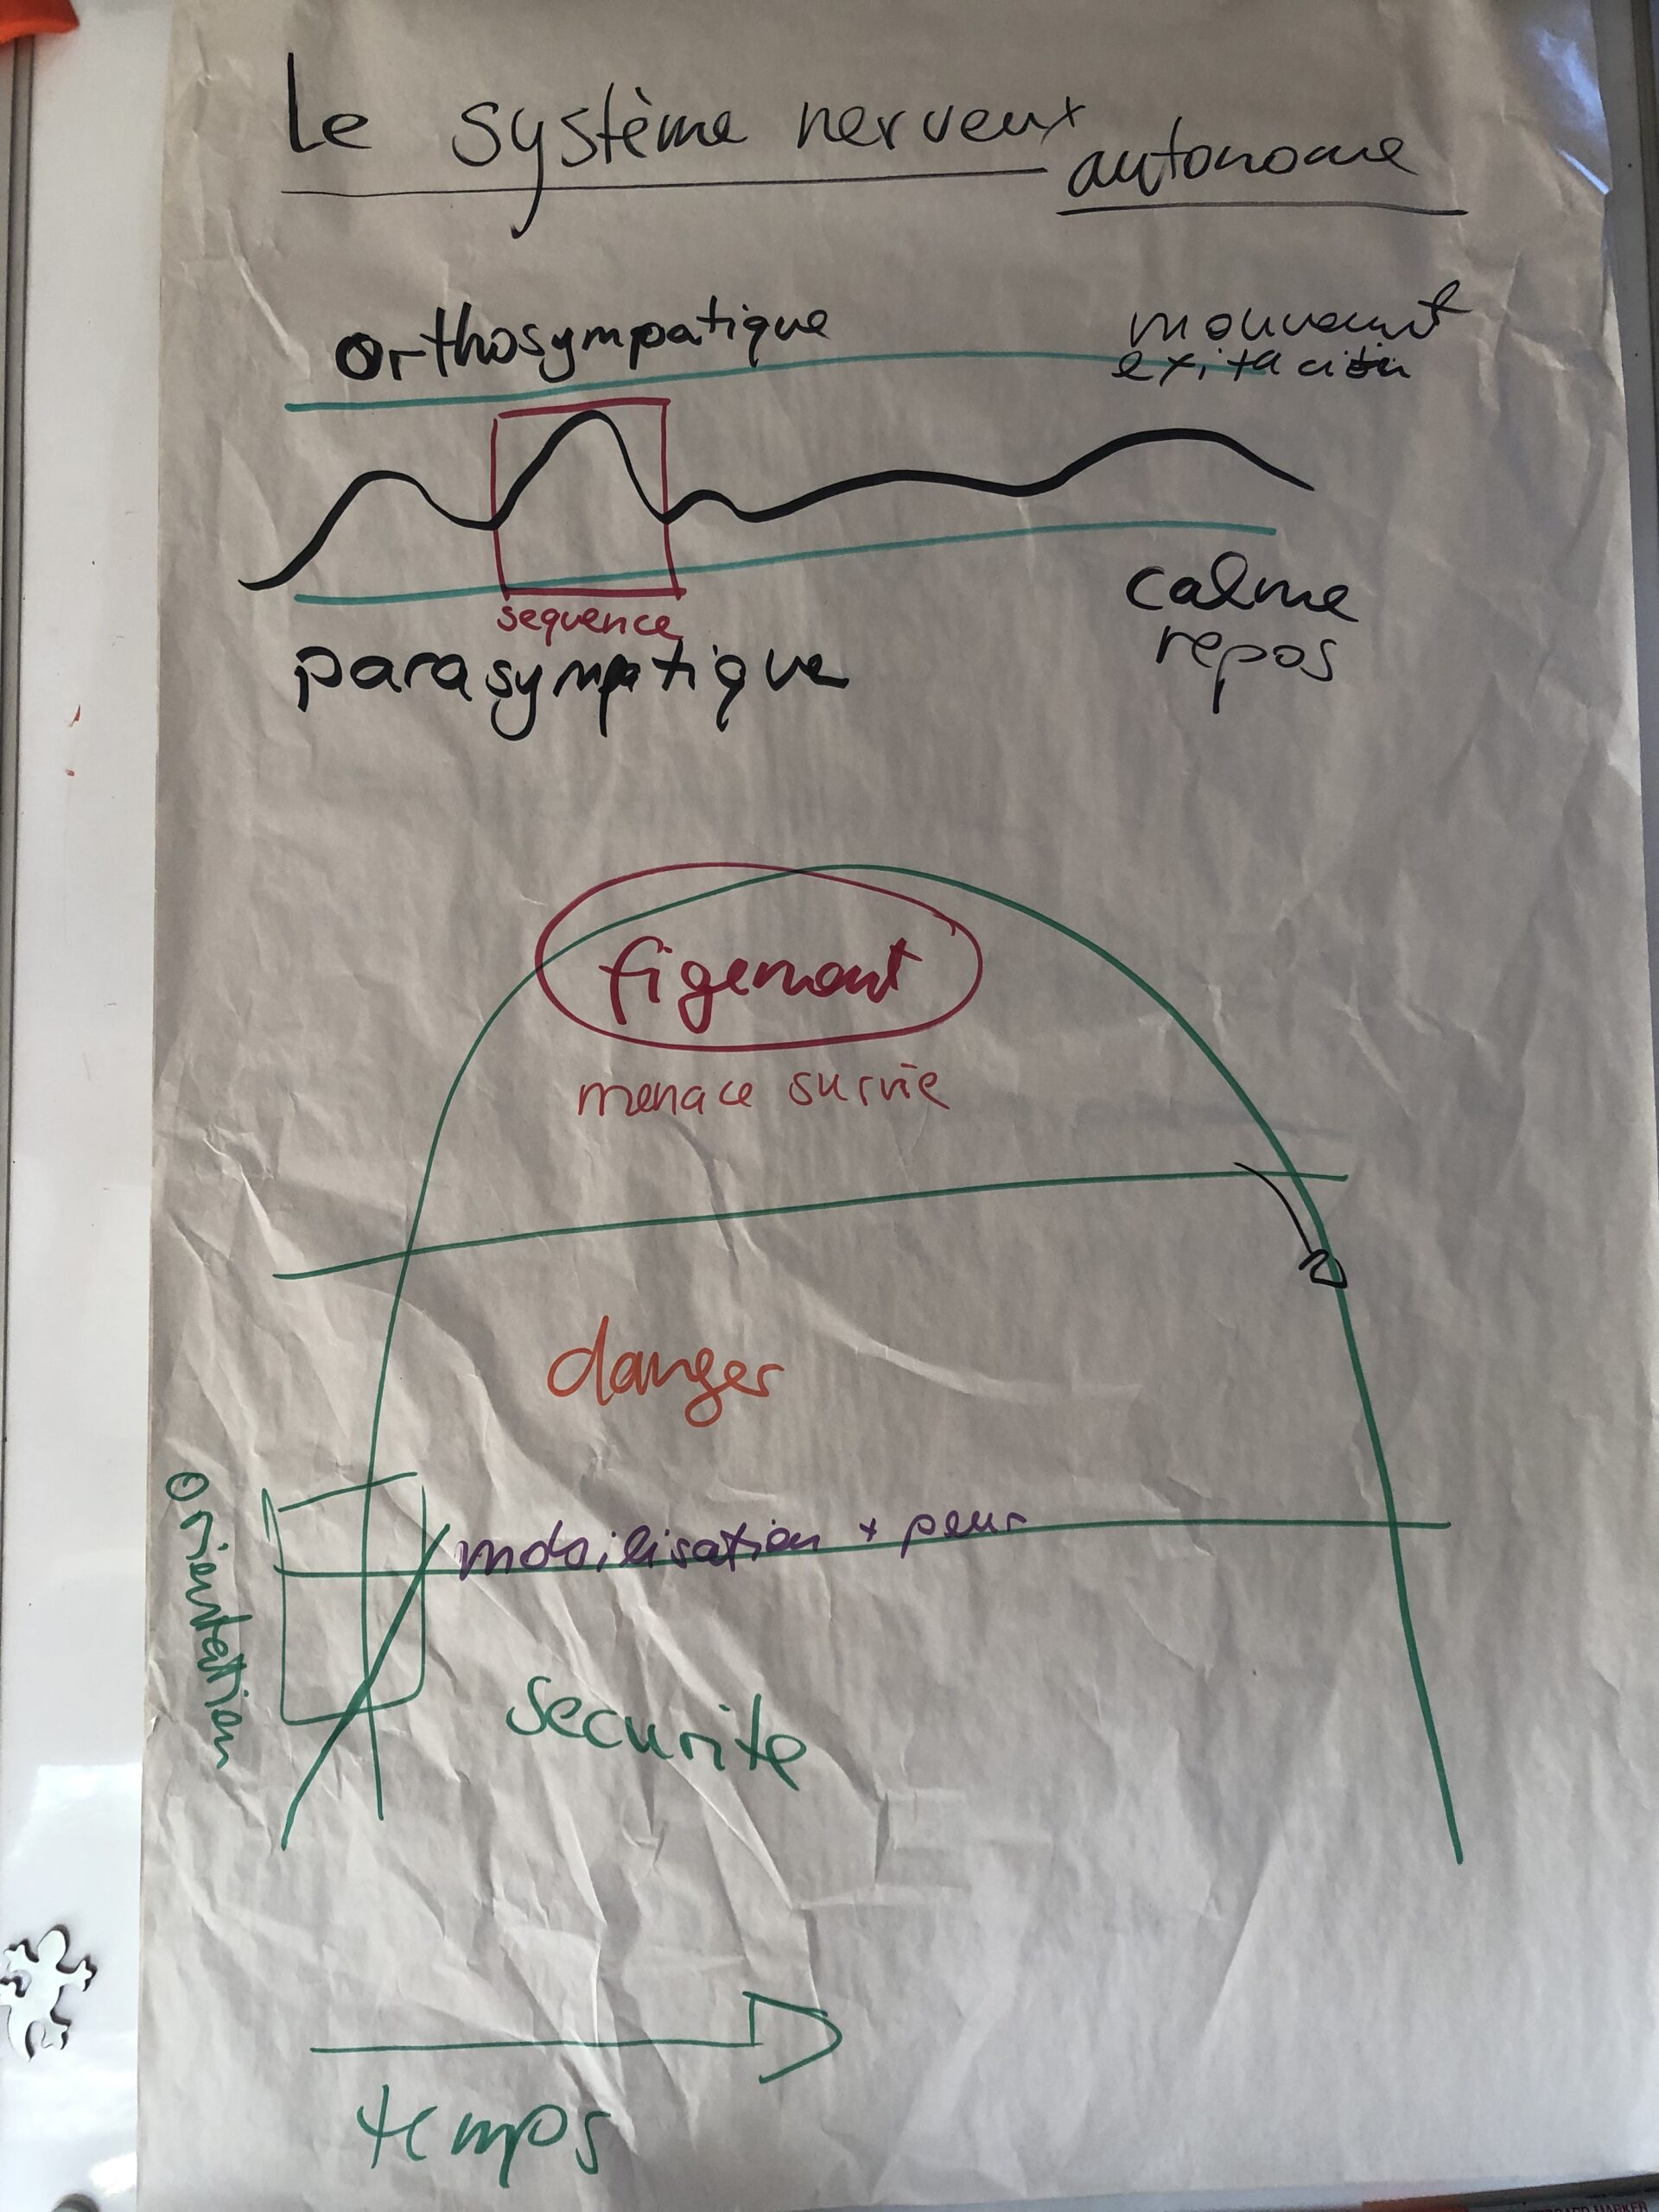 Le système nerveux
autonome
orthosympatique
mouvement
exitacion
sequence
parasympatique
calme
repos
figement
menace survie
danger
mobilisation + peur
orientation
securite
temps